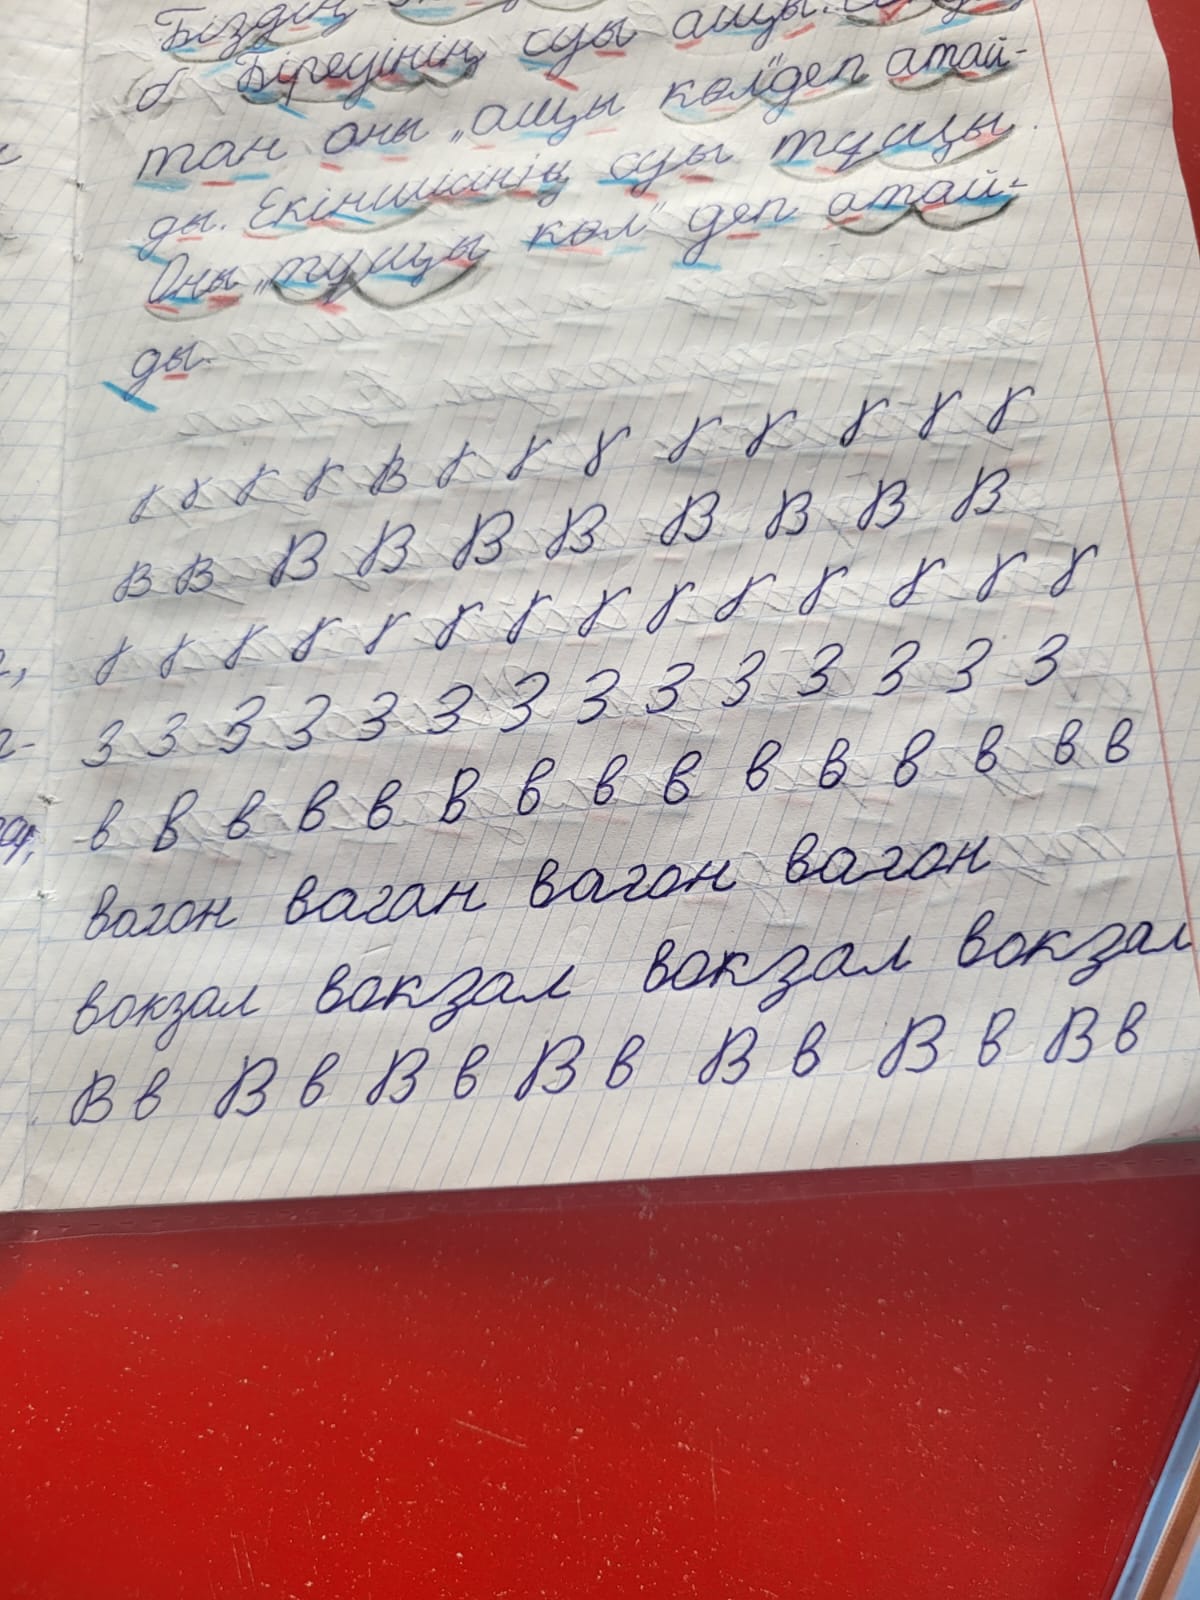 Біздің
б Біреуінің суы ащы.
тан оны „ащы көл" деп атай-
ды. Екіншісінің суы тұщы.
Оны „тұщы көл" деп атай-
ды.
В
В В В В В В В В В В
З З З З З З З З З З З З З З
в в в в в в в в в в в в в в в
вагон ваган вагон вагон
вокзал вокзал вокзал вокзал
В в В в В в В в В в В в В в